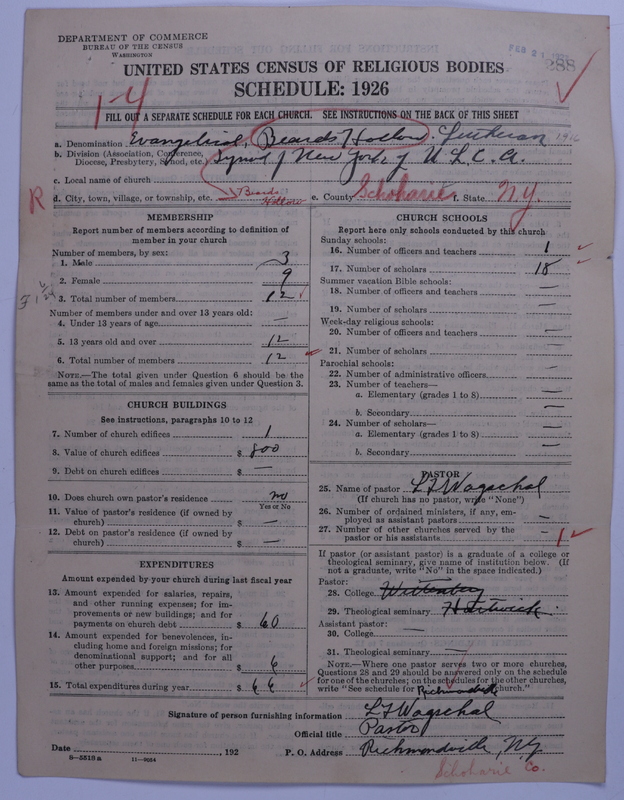 DEPARTMENT OF COMMERCE
BUREAU OF THE CENSUS
WASHINGTON
FEB 21
288
UNITED STATES CENSUS OF RELIGIOUS BODIES
SCHEDULE: 1926
1-4
FILL OUT A SEPARATE SCHEDULE FOR EACH CHURCH. SEE INSTRUCTIONS ON THE BACK OF THIS SHEET
a. Denomination Evangelical, Beards Hollow, Lutheran 1916
b. Division (Association, Conference, Diocese, Presbytery, Synod, etc.) Synod of New York of U. L. C. A.
c. Local name of church
R
d. City, town, village, or township, etc. Beards Hollow e. County Schoharie f. State N.Y.
MEMBERSHIP
Report number of members according to definition of
member in your church
Number of members, by sex:
1. Male 3
2. Female 9
3. Total number of members 12
Number of members under and over 13 years old:
4. Under 13 years of age —
5. 13 years old and over 12
6. Total number of members 12
NOTE.—The total given under Question 6 should be the
same as the total of males and females given under Question 3.
CHURCH BUILDINGS
See instructions, paragraphs 10 to 12
7. Number of church edifices 1
8. Value of church edifices $ 800
9. Debt on church edifices $ —
10. Does church own pastor's residence no
Yes or No
11. Value of pastor's residence (if owned by
church) $ —
12. Debt on pastor's residence (if owned by
church) $ —
EXPENDITURES
Amount expended by your church during last fiscal year
13. Amount expended for salaries, repairs,
and other running expenses; for im-
provements or new buildings; and for
payments on church debt $ 60
14. Amount expended for benevolences, in-
cluding home and foreign missions; for
denominational support; and for all
other purposes $ 6
15. Total expenditures during year $ 66
CHURCH SCHOOLS
Report here only schools conducted by this church
Sunday schools:
16. Number of officers and teachers 1
17. Number of scholars 18
Summer vacation Bible schools:
18. Number of officers and teachers —
19. Number of scholars —
Week-day religious schools:
20. Number of officers and teachers —
21. Number of scholars —
Parochial schools:
22. Number of administrative officers —
23. Number of teachers—
a. Elementary (grades 1 to 8) —
b. Secondary —
24. Number of scholars—
a. Elementary (grades 1 to 8) —
b. Secondary —
PASTOR
25. Name of pastor L F Wagschal
(If church has no pastor, write "None")
26. Number of ordained ministers, if any, em-
ployed as assistant pastors —
27. Number of other churches served by the
pastor or his assistants 1
If pastor (or assistant pastor) is a graduate of a college or
theological seminary, give name of institution below. (If
not a graduate, write "No" in the space indicated.)
Pastor:
28. College Wittenberg
29. Theological seminary Hartwick
Assistant pastor:
30. College —
31. Theological seminary —
NOTE.—Where one pastor serves two or more churches,
Questions 28 and 29 should be answered only on the schedule
for one of the churches; on the schedules for the other churches,
write "See schedule for Richmondville church."
Signature of person furnishing information L F Wagschal
Official title Pastor
Date , 192 P. O. Address Richmondville, N.Y.
8—5518 a 11—9054
Schoharie Co.